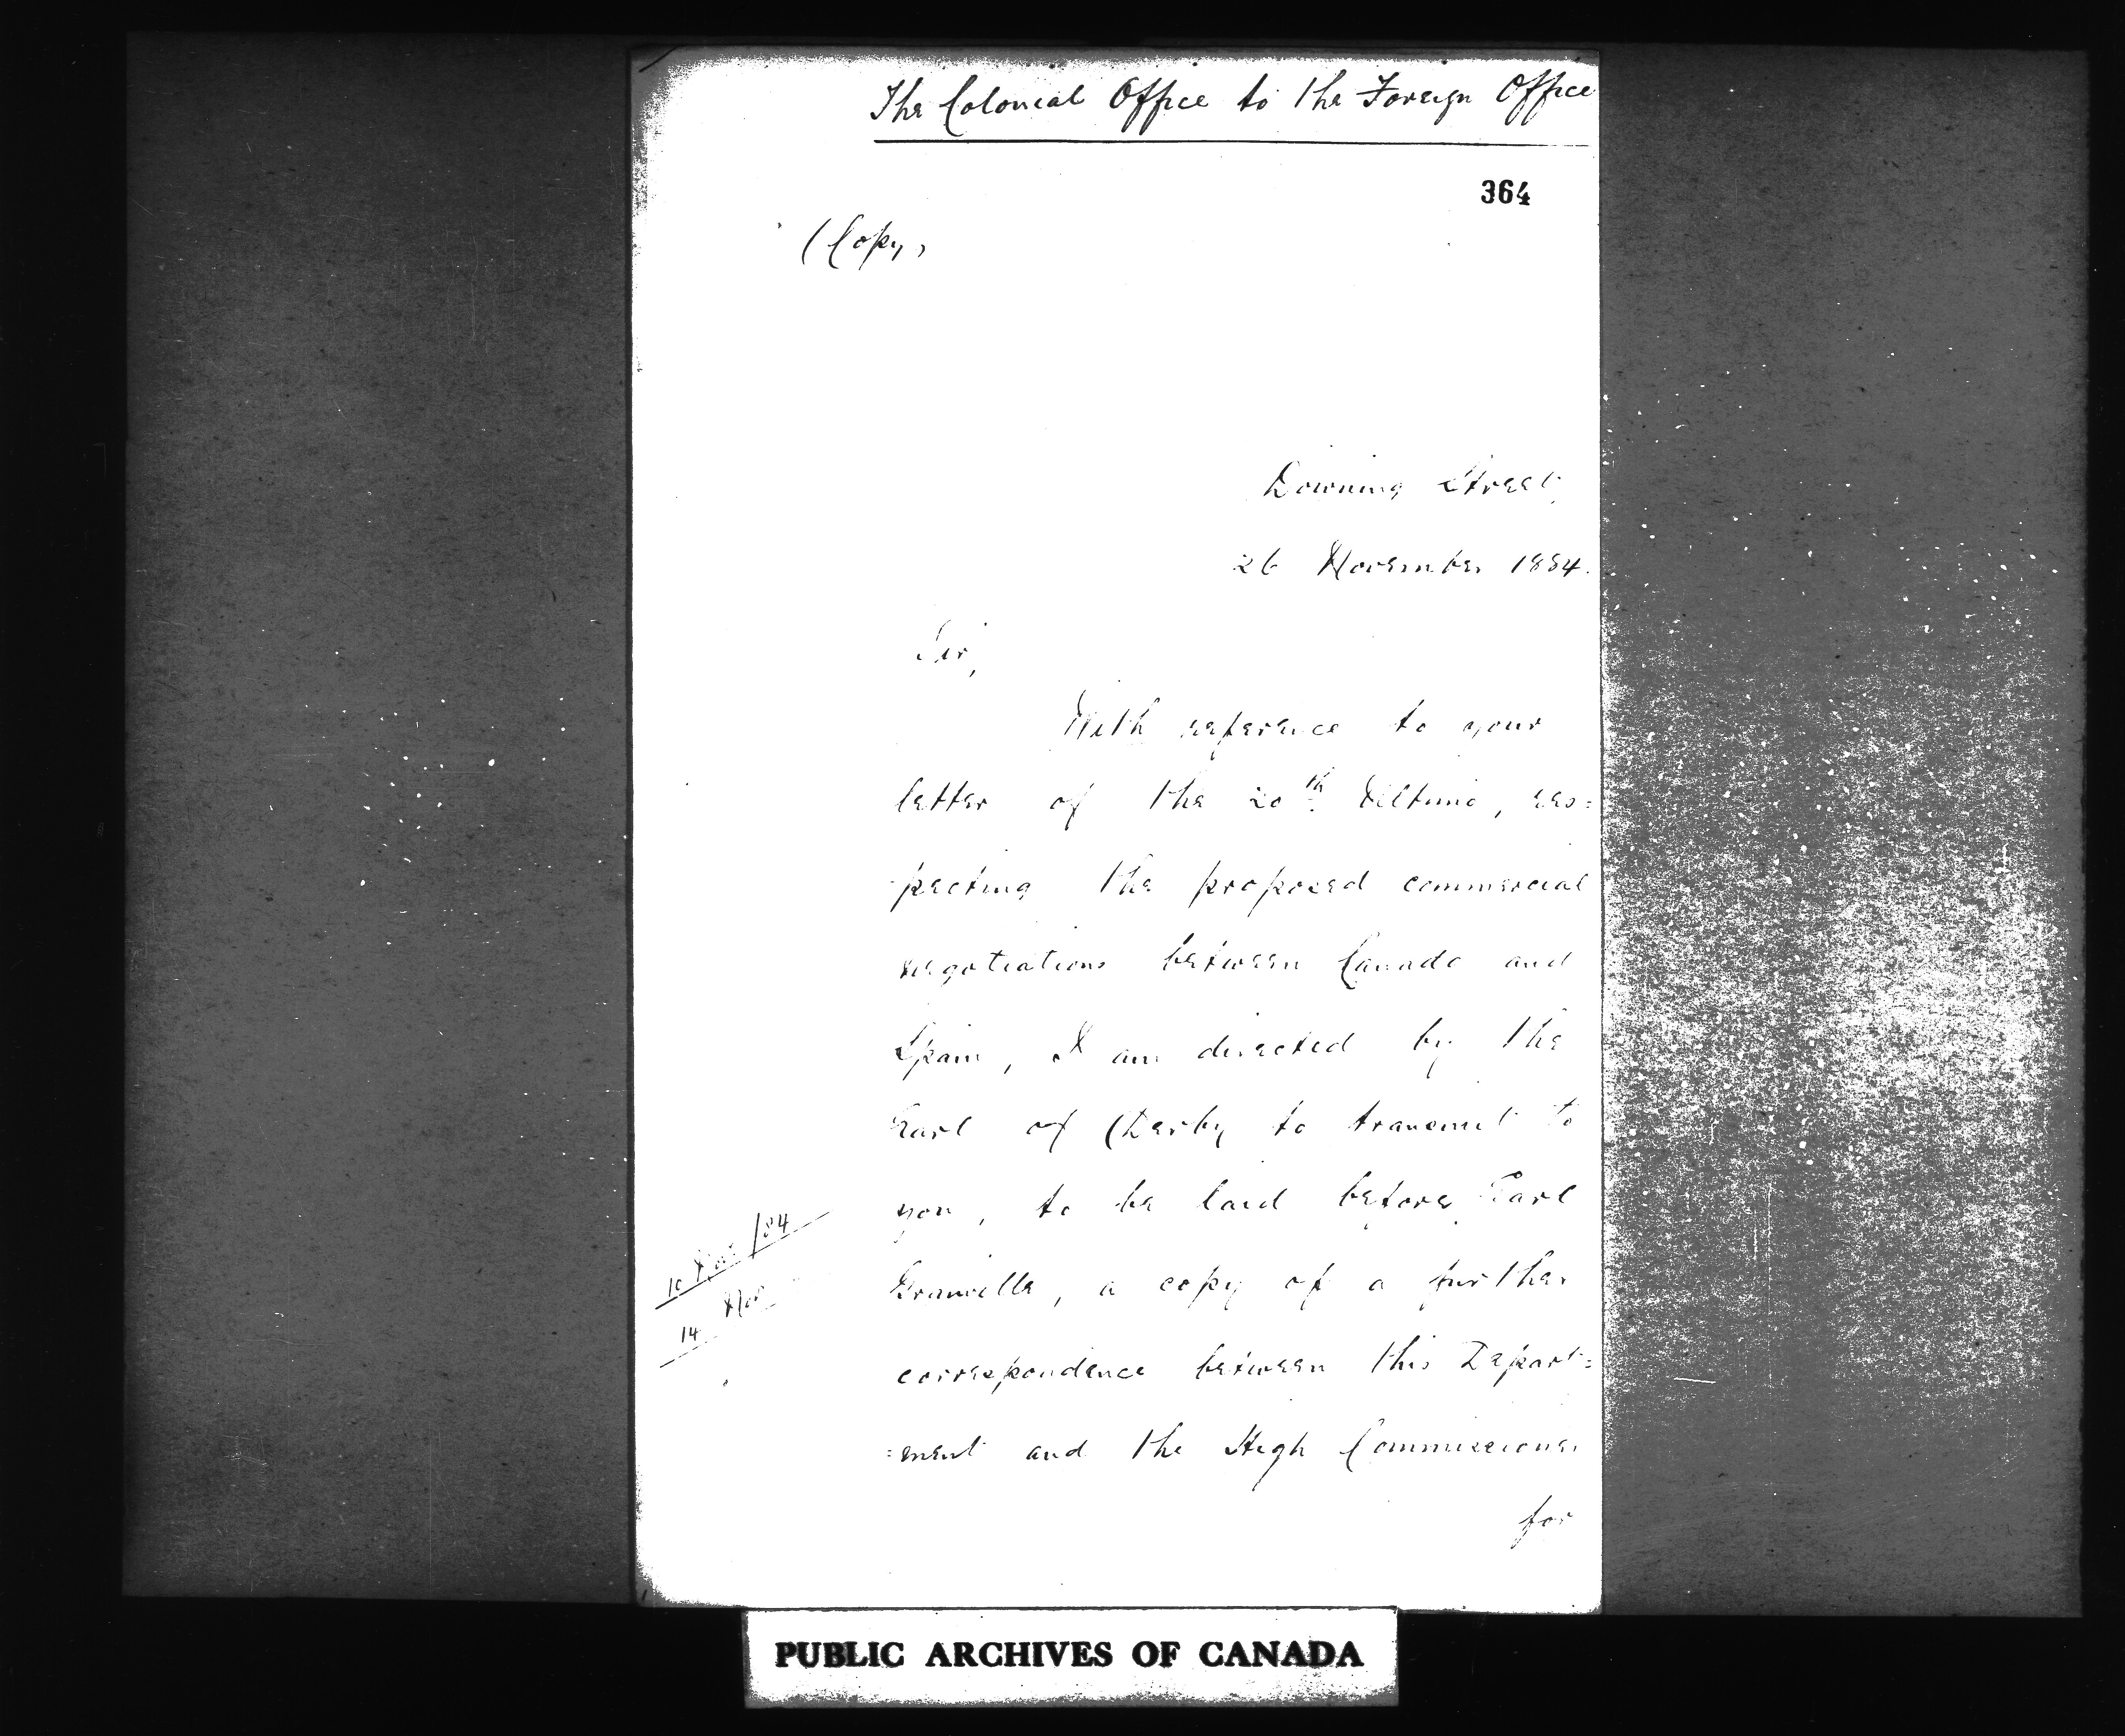 The Colonial Office to the Foreign Office
364
(Copy)
Downing Street,
26 November 1884.
Sir,
With reference to your
letter of the 20th Ultimo, res=
=pecting the proposed commercial
negotiations between Canada and
Spain, I am directed by the
Earl of Derby to transmit to
you, to be laid before Earl
Granville, a copy of a further
correspondence between this Depart=
=ment and the High Commissioner
for
10 Nov: /84
14 Nov
PUBLIC ARCHIVES OF CANADA